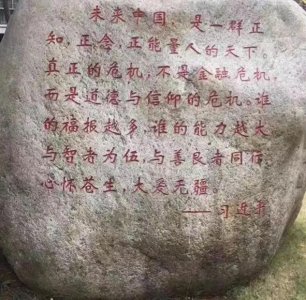 未来中国，是一群正
知，正念，正能量人的天下。
真正的危机，不是金融危机，
而是道德与信仰的危机。谁
的福报越多，谁的能力越大
与智者为伍，与善良者同行，
心怀苍生，大爱无疆。
——习近平